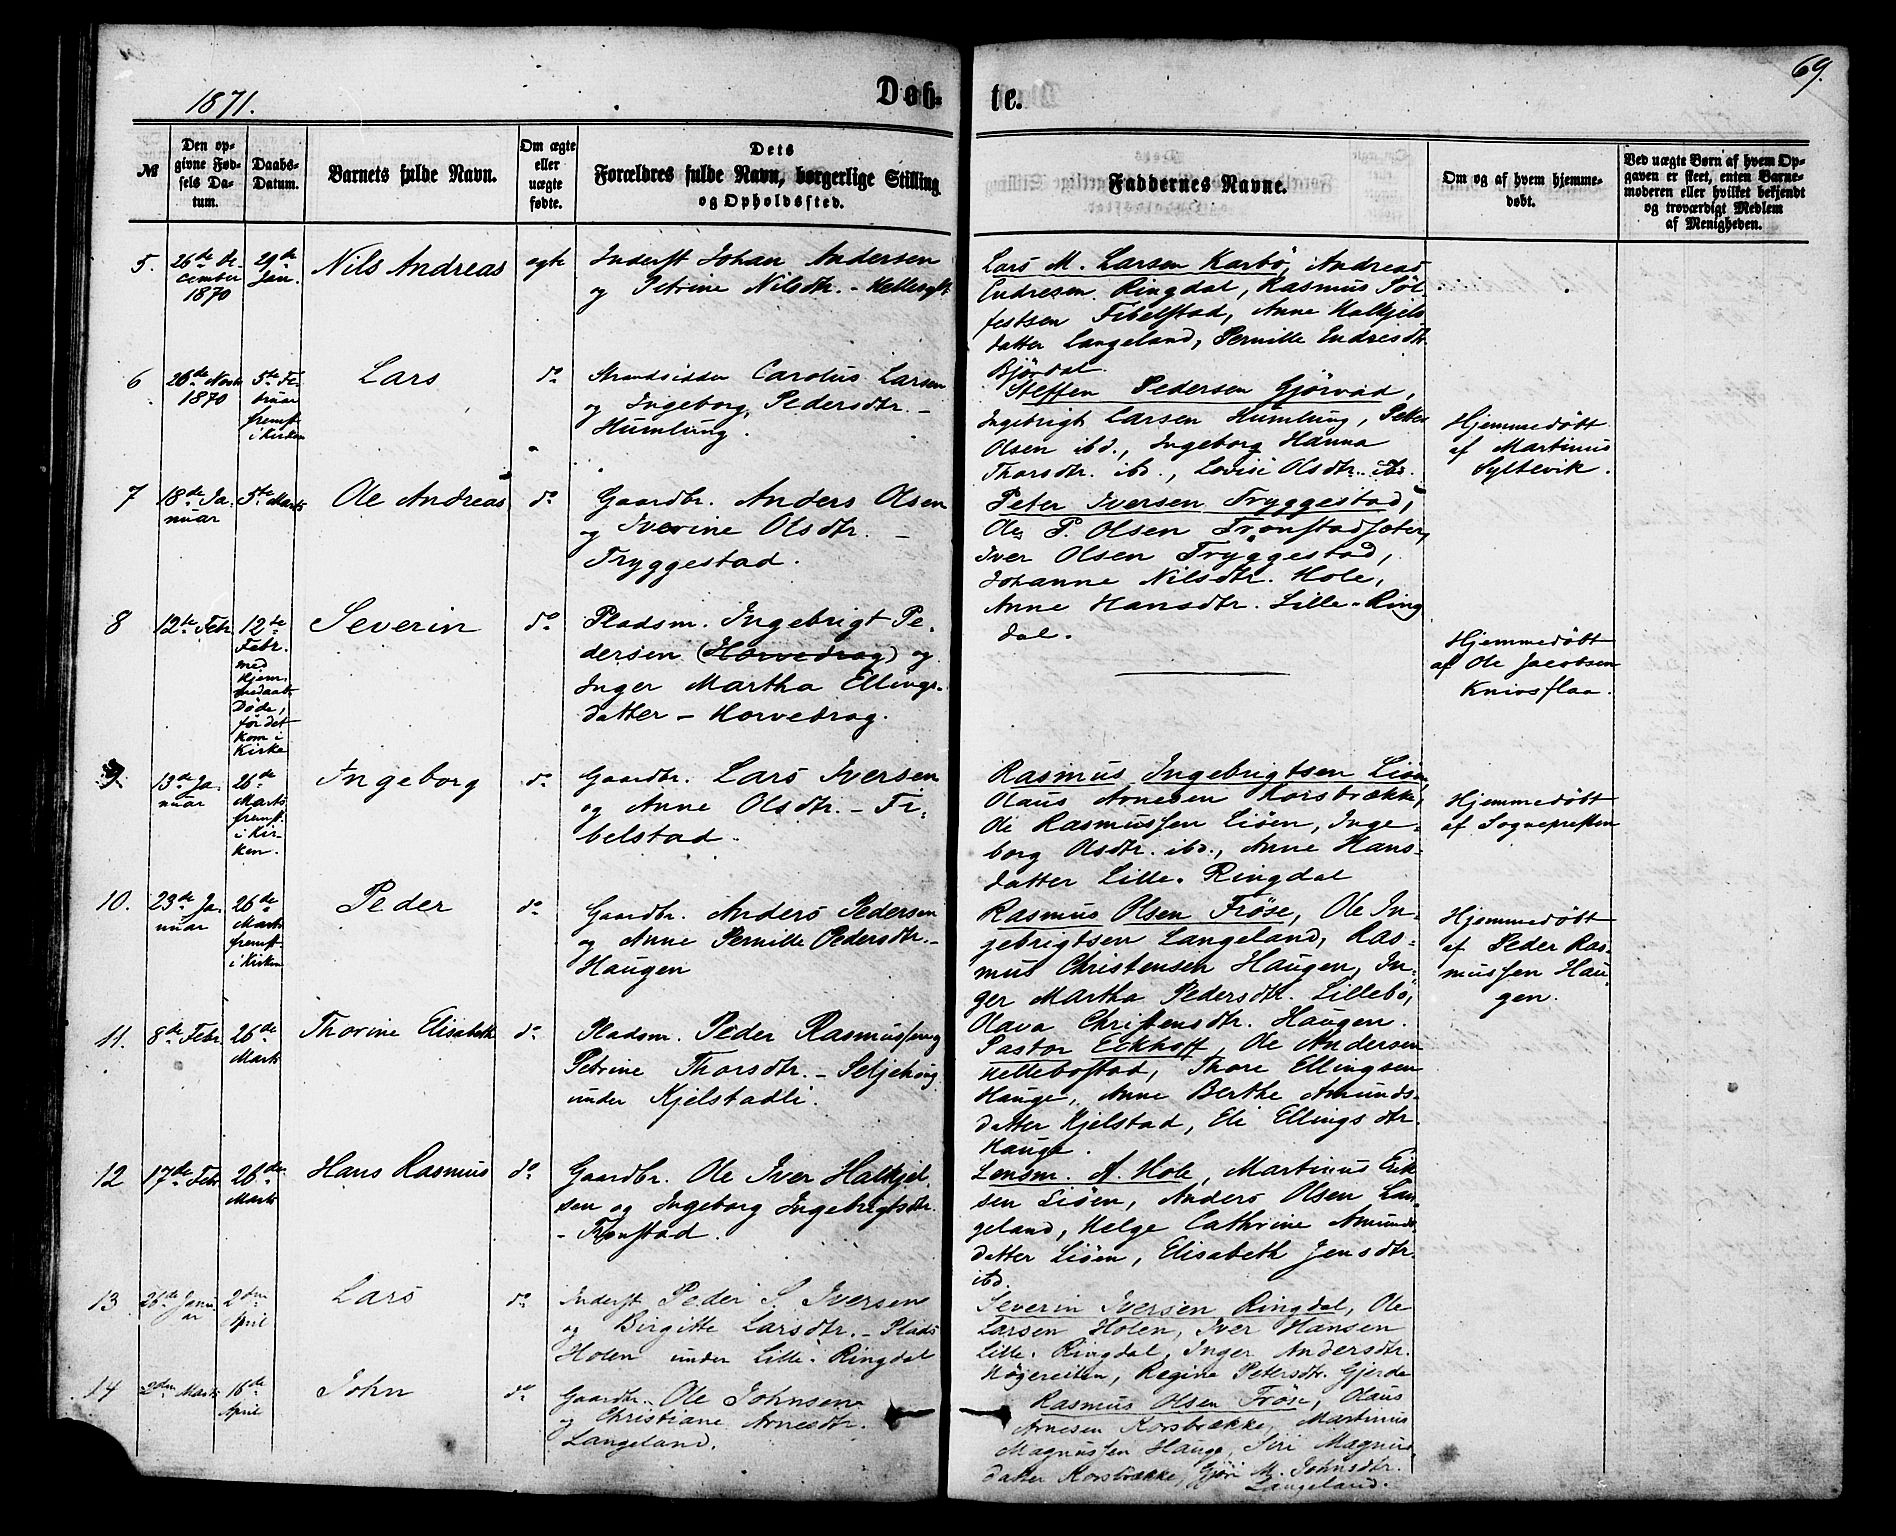 1871.
Døb-
te.
69.
№
Den op-
givne Fød-
sels Da-
tum.
Daabs-
Datum.
Barnets fulde Navn.
Om ægte
eller
uægte
fødte.
Dets
Forældres fulde Navn, borgerlige Stilling
og Opholdssted.
Faddernes Navne.
Om og af hvem hjemme-
døbt.
Ved uægte Børn af hvem Op-
gaven er skeet, enten Barne-
moderen eller hvilket bekjendt
og troværdigt Medlem
af Menigheden.
5.
26de De
cember
1870
29de
Jan.
Nils Andreas
egte
Inderst Johan Andersen
og Petrine Nilsdtr. -
Lars M. Larsen Karbö, Andreas
Endresen Ringdal, Rasmus Söl-
festsen Fibelstad, Anne Halkjels
datter Langeland, Pernille Endresdtr.
Björdal.
6
26de Novbr
1870
5te Fe-
bruar
fremst.
i Kirken
Lars
do
Strandsidder Carolus Larsen
og Ingeborg Pedersdtr. -
Humlung.
Steffen Pedersen Gjörvad,
Ingebrigt Larsen Humlung, Petter
Olsen ibd., Ingeborg Hanna
Thorsdtr. ibd., Lovise Olsdtr.
Hjemmedöbt
af Martinus
Syltevik.
7
18de Ja-
nuar
5te Marts
Ole Andreas
do
Gaardbr. Anders Olsen
og Iverine Olsdtr. -
Tryggestad.
Peter Iversen Tryggestad,
Ole P. Olsen Tronstadsæter,
Iver Olsen Tryggestad,
Johanne Nilsdtr. Hole,
Anne Hansdtr. Lille-Ring
dal.
8
12te Febr.
12te
Febr.
med
hjem-
medaab.
Döde,
för det
kom i
Kirke
Severin
do
Pladsm. Ingebrigt Pe-
dersen (Horvedrag) og
Inger Martha Ellings-
datter - Horvedrag.
Hjemmedöbt
af Ole Jacobsen
Knivsflaa.
9
13de Ja-
nuar
26de
Marts
fremst.
i Kir-
ken.
Ingeborg
do
Gaardbr. Lars Iversen
og Anne Olsdtr. - Fi-
belstad.
Rasmus Ingebrigtsen Liöen,
Olaus Arnesen Korsbrække,
Ole Rasmussen Liöen, Inge-
borg Olsdtr. ibd., Anne Hans-
datter Lille-Ringdal
Hjemmedöbt
af Sognepresten
10.
23de Ja-
nuar
26de
Marts
fremst.
i Kirken
Peder
do
Gaardbr. Anders Pedersen
og Anne Pernille Pedersdtr. -
Haugen
Rasmus Olsen Fröse, Ole In-
gebrigtsen Langeland, Ras-
mus Christensen Haugen, In-
ger Martha Pedersdtr. Lillebö,
Olava Christensdtr. Haugen.
Hjemmedöbt
af Peder Ras-
mussen Hau-
gen.
11.
8de Febr.
26de
Marts
Thorine Elisabeth
do
Pladsm. Peder Rasmussen og
Petrine Thorsdtr. - Seljehaug
under Kjelstadli.
Pastor Eckhoff, Ole Andersen
Hellebostad, Thore Ellingsen
Hauge, Anne Berthe Amunds-
datter Kjelstad, Eli Ellingsdtr.
Hauge.
12
17de Febr
26de
Marts
Hans Rasmus
do
Gaardbr. Ole Iver Halkjel-
sen og Ingeborg Ingebrigtsdtr.
- Tronstad.
Lensm. A. Hole, Martinus Erik
sen Liöen, Anders Olsen Lan-
geland, Helge Cathrine Amunds-
datter Liöen, Elisabeth Jensdtr.
ibd.
13
26de Janu-
ar
2den
April
Lars
do
Inderst Peder S. Iversen
og Birgitte Larsdtr. - Plads
Holen under Lille-Ringdal
Severin Iversen Ringdal, Ole
Larsen Holen, Iver Hansen
Lille-Ringdal, Inger Andersdtr.
Högereiten, Regine Petersdtr. Gjerde
14
2den Marts
16de
April
John
do
Gaardbr. Ole Johnsen
og Christiane Arnesdtr.
Langeland.
Rasmus Olsen Fröse, Olaus
Arnesen Korsbrække, Martinus
Magnussen Hauge, Siri Magnus
datter Korsbrække, Gjöri M. Johnsdtr.
Langeland.